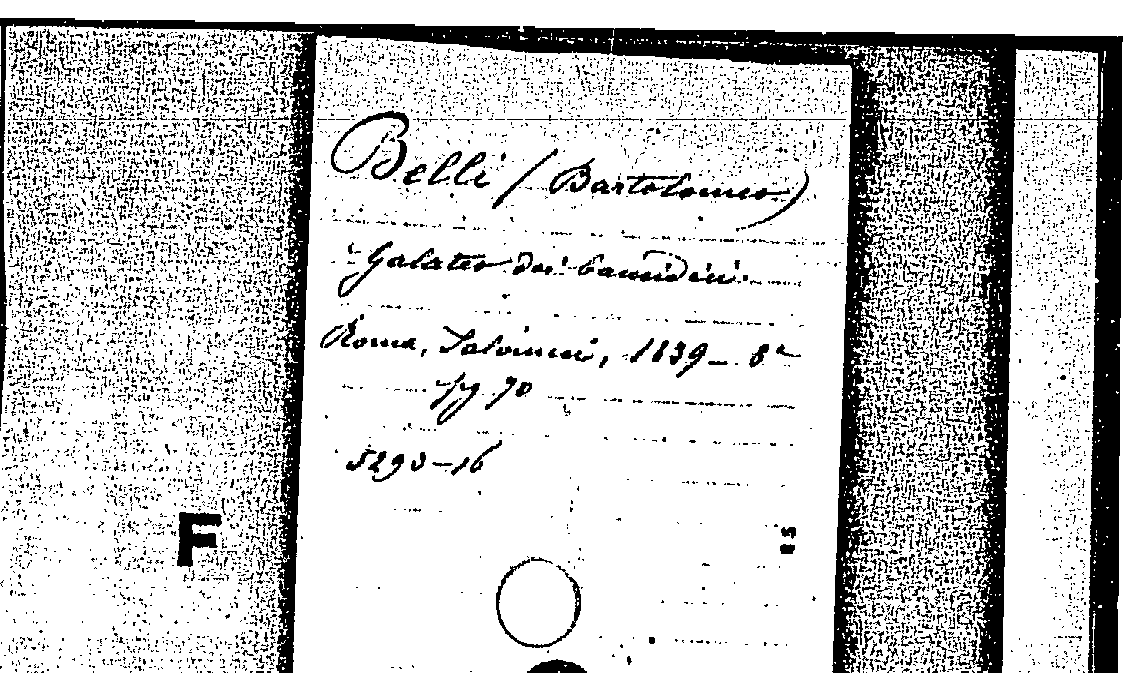 Belli (Bartolomeo)
Galateo dei bambini.
Roma, Salviucci, 1839 – 8°
pg 70
5293-16
F